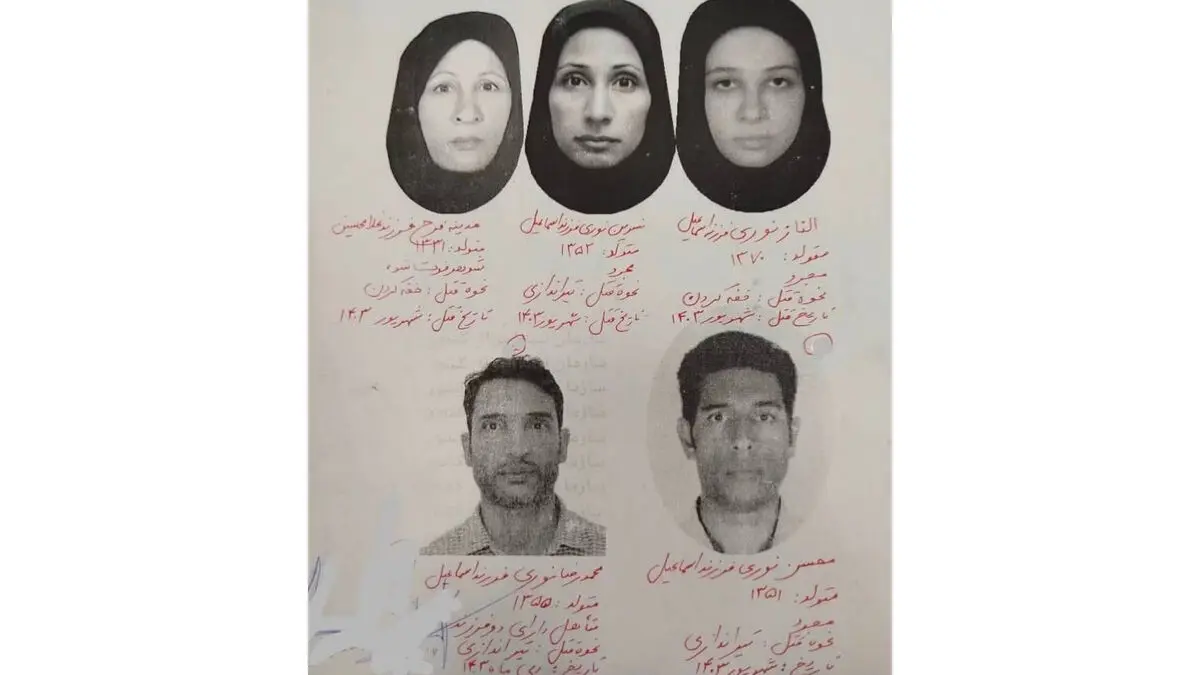 الناز نوری فرزند اسماعیل
متولد: ۱۳۷۰
مجرد
نحوة قتل: خفه کردن
تاریخ قتل: شهریور ۱۴۰۳
نسرین نوری فرزند اسماعیل
متولد: ۱۳۵۲
مجرد
نحوة قتل: تیراندازی
تاریخ قتل: شهریور ۱۴۰۳
مدینه فرزند غلامحسین
متولد: ۱۳۳۱
شوهر فوت شده
نحوة قتل: خفه کردن
تاریخ قتل: شهریور ۱۴۰۳
محسن نوری فرزند اسماعیل
متولد: ۱۳۵۱
نحوة قتل: تیراندازی
تاریخ: شهریور ۱۴۰۳
محمدرضا نوری فرزند اسماعیل
متولد: ۱۳۵۵
متأهل دارای دو فرزند
نحوة قتل: تیراندازی
تاریخ: دی ماه ۱۴۰۳